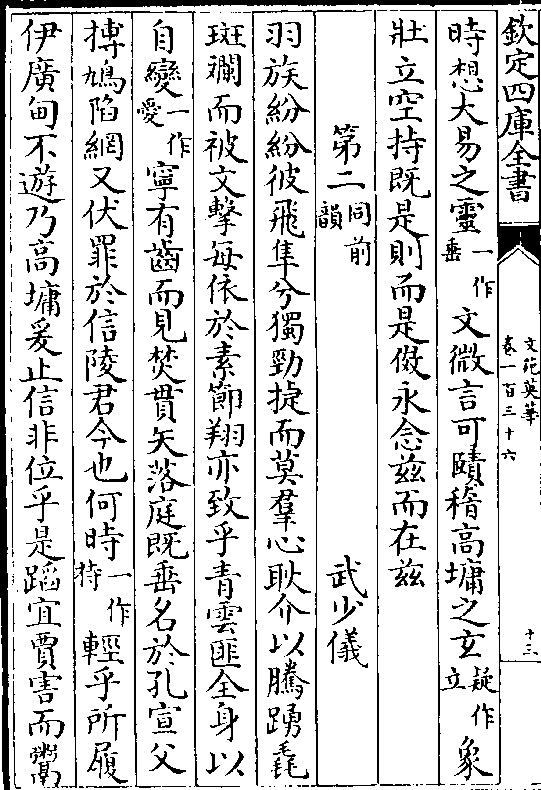 欽定四庫全書
文苑英華
卷一百三十六
十三
時想大易之靈一作垂文微言可賾稽高墉之玄疑作立象
壯立空持既是則而是傚永念茲而在茲
第二同前韻
武少儀
羽族紛紛彼飛隼兮獨勁捷而莫羣心耿介以騰踴毳
斑斕而被文擊每依於素節翔亦致乎青雲匪全身以
自變一作愛寧有齒而見焚貫矢落庭既垂名於孔宣父
搏鳩陷網又伏罪於信陵君今也何時一作恃輕乎所履
伊廣甸不遊乃高墉爰止信非位乎是蹈宜賈害而鬻